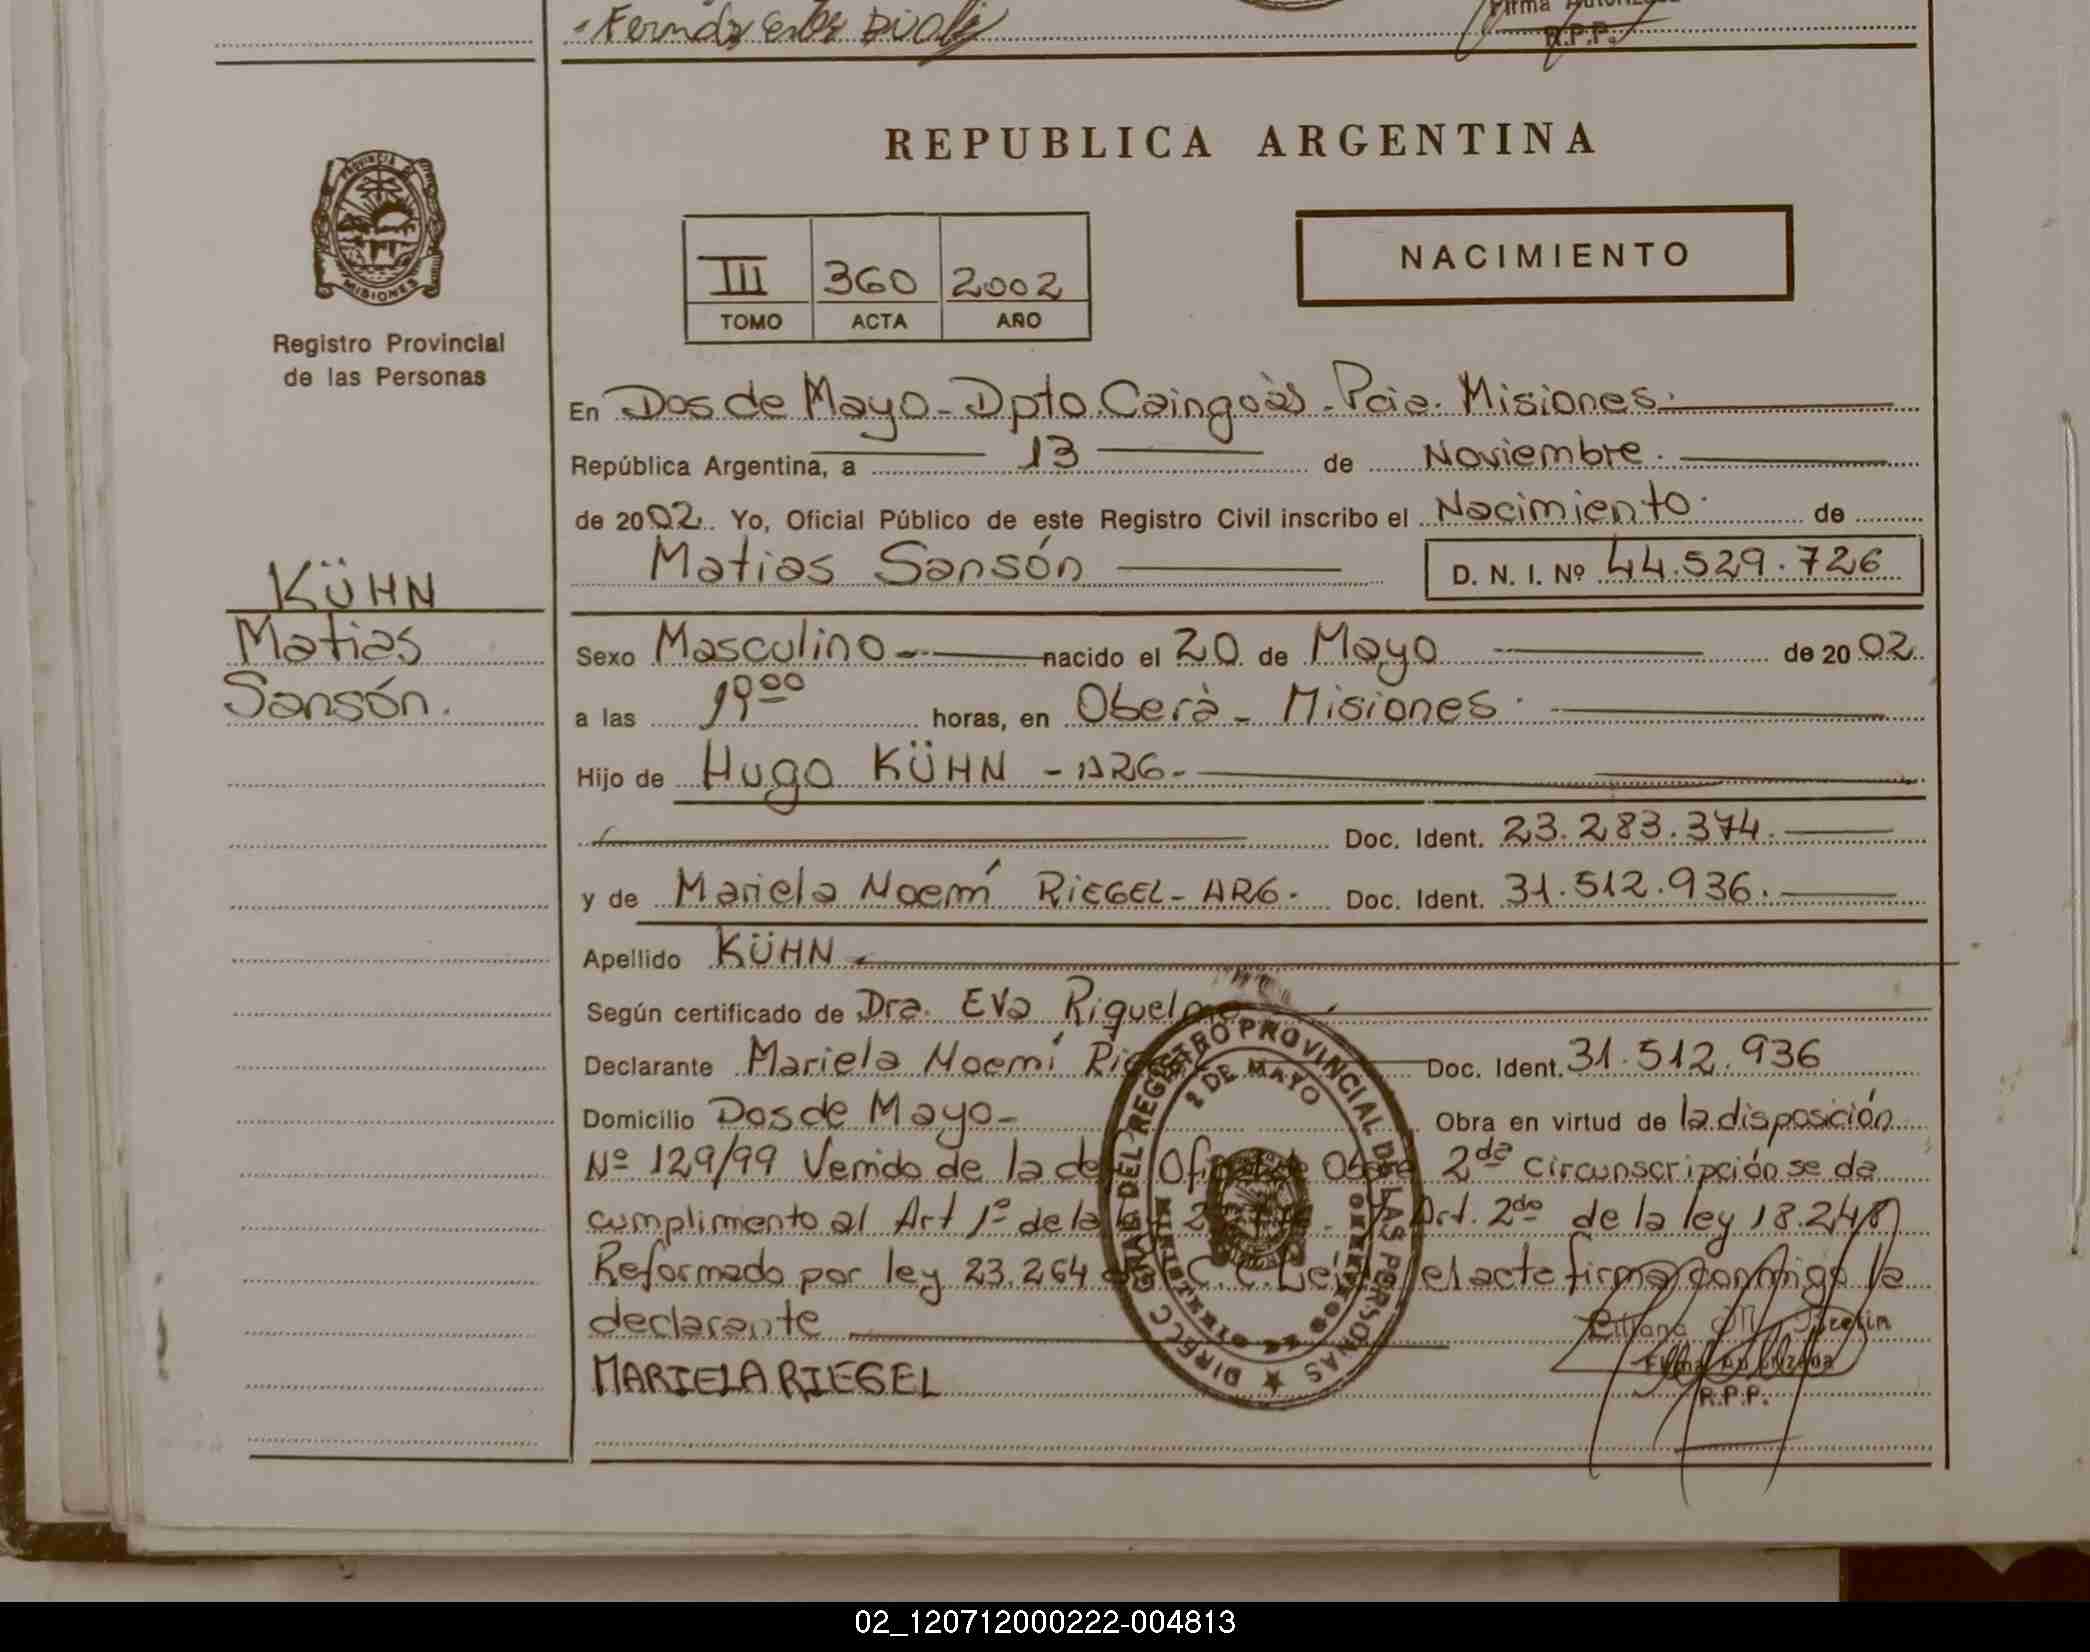 Firma Autorizada
R.P.P.
PROVINCIA DE
MISIONES
Registro Provincial
de las Personas
REPUBLICA ARGENTINA
III 360 2002
TOMO ACTA AÑO
NACIMIENTO
En Dos de Mayo - Dpto. Caingoàs - Pcia. Misiones.
República Argentina, a 13 de Noviembre.
de 2002. Yo, Oficial Público de este Registro Civil inscribo el Nacimiento de
Matias Sansón D. N. I. Nº 44.529.726
KÜHN
Matias
Sansón.
Sexo Masculino nacido el 20 de Mayo de 2002.
a las 19 00 horas, en Oberà - Misiones.
Hijo de Hugo KÜHN - ARG -
Doc. Ident. 23.283.374.
y de Mariela Noemí RIEGEL - ARG. Doc. Ident. 31.512.936.
Apellido KÜHN
Según certificado de Dra. Eva Riquelme
Declarante Mariela Noemí Doc. Ident. 31.512.936
Domicilio Dos de Mayo - Obra en virtud de la disposición
Nº 129/99 Venido de la 2da circunscripción se da
cumplimiento al Art 1º de la Art. 2do de la ley 18.248
Reformado por ley 23.264 C.C. el acta firma conmigo la
declarante
MARIELA RIEGEL
DIRECC GRAL DEL REGISTRO PROVINCIAL DE LAS PERSONAS
2 DE MAYO
Firma Autorizada
R.P.P.
02_120712000222-004813